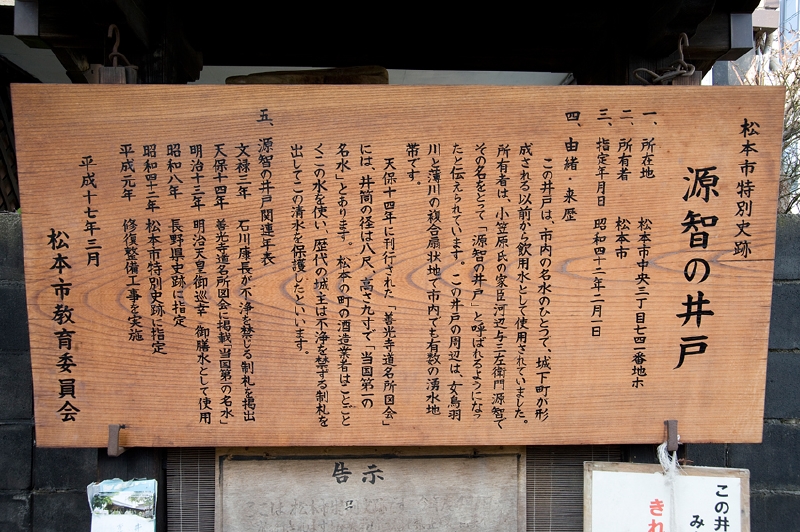 松本市特別史跡
源智の井戸
一、所在地　松本市中央三丁目七四一番地ホ
二、所有者　松本市
三、指定年月日　昭和四十二年二月一日
四、由緒・来歴
この井戸は、市内の名水のひとつで、城下町が形
成される以前から飲用水として使用されていました。
所有者は、小笠原氏の家臣河辺与三左衛門源智で
その名をとって「源智の井戸」と呼ばれるようになっ
たと伝えられています。この井戸の周辺は、女鳥羽
川と薄川の複合扇状地で市内でも有数の湧水地
帯です。
天保十四年に刊行された「善光寺道名所図会」
には、井筒の径は八尺、高さ九寸で「当国第一の
名水」とあります。松本の町の酒造業者はことごと
くこの水を使い、歴代の城主は不浄を禁ずる制札を
出してこの清水を保護したといいます。
五、源智の井戸関連年表
文禄三年　石川康長が不浄を禁じる制札を掲出
天保十四年　善光寺道名所図会に掲載「当国第一の名水」
明治十三年　明治天皇御巡幸　御膳水として使用
昭和八年　長野県史跡に指定
昭和四十二年　松本市特別史跡に指定
平成元年　修復整備工事を実施
平成十七年三月
松本市教育委員会
告示
ここは松本
この井
み
きれ